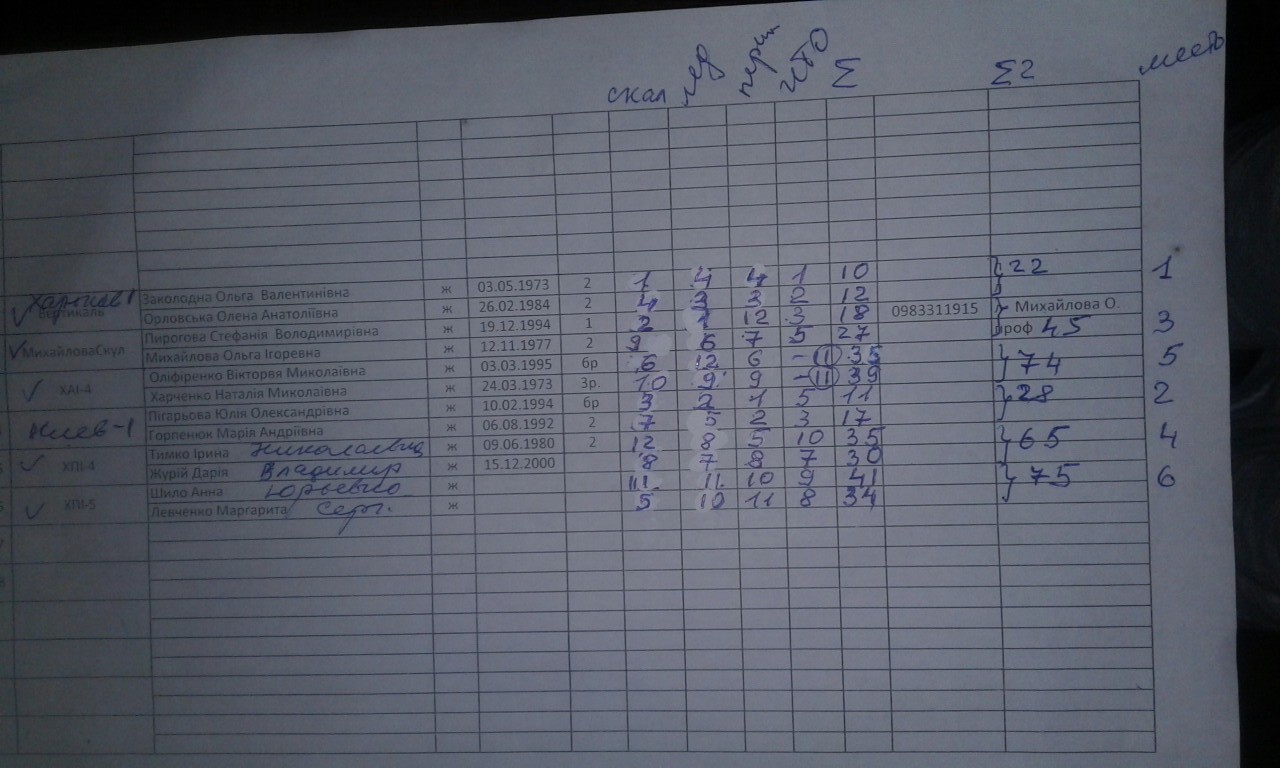 скал лед терм ИТО Σ Σ2 место
Харьков 1 Вертикаль Заколодна Ольга Валентинівна ж 03.05.1973 2 1 4 4 1 10 22 1
Орловська Олена Анатоліївна ж 26.02.1984 2 4 3 3 2 12
МихайловаСкул Пирогова Стефанія Володимирівна ж 19.12.1994 1 2 1 12 3 18 0983311915 Михайлова О. 3
Михайлова Ольга Ігоревна ж 12.11.1977 2 9 6 7 5 27 проф 45
ХАІ-4 Оліфіренко Вікторвя Миколаївна ж 03.03.1995 бр 6 12 6 - 11 35 74 5
Харченко Наталія Миколаївна ж 24.03.1973 3р. 10 9 9 - 11 39
Киев-1 Пігарьова Юлія Олександрівна ж 10.02.1994 бр 3 2 1 5 11 28 2
Горпенюк Марія Андріївна ж 06.08.1992 2 7 5 2 3 17
ХПІ-4 Тимко Ірина Николаевна ж 09.06.1980 2 12 8 5 10 35 65 4
Журій Дарія Владимир ж 15.12.2000 8 7 8 7 30
ХПІ-5 Шило Анна Юрьевна ж 11 11 10 9 41 75 6
Левченко Маргарита Серг. ж 5 10 11 8 34